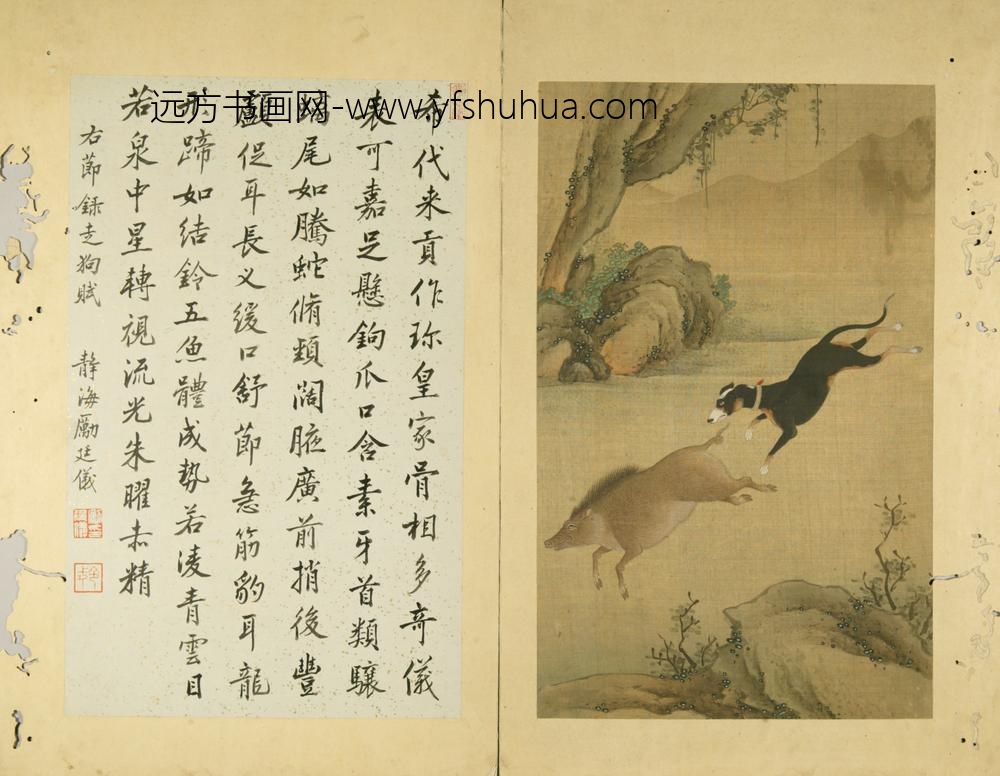 远方书画网-www.yfshuhua.com
希代来貢作珎皇家骨相多奇儀
表可嘉足懸鉤爪口含素牙首類驤
尾如騰蛇脩頸闊腋廣前捎後豐
顱促耳長叉緩口舒節急筋豹耳龍
形蹄如結鈴五魚體成勢若淩青雲目
若泉中星轉視流光朱曜赤精
右節録走狗賦 靜海勵廷儀